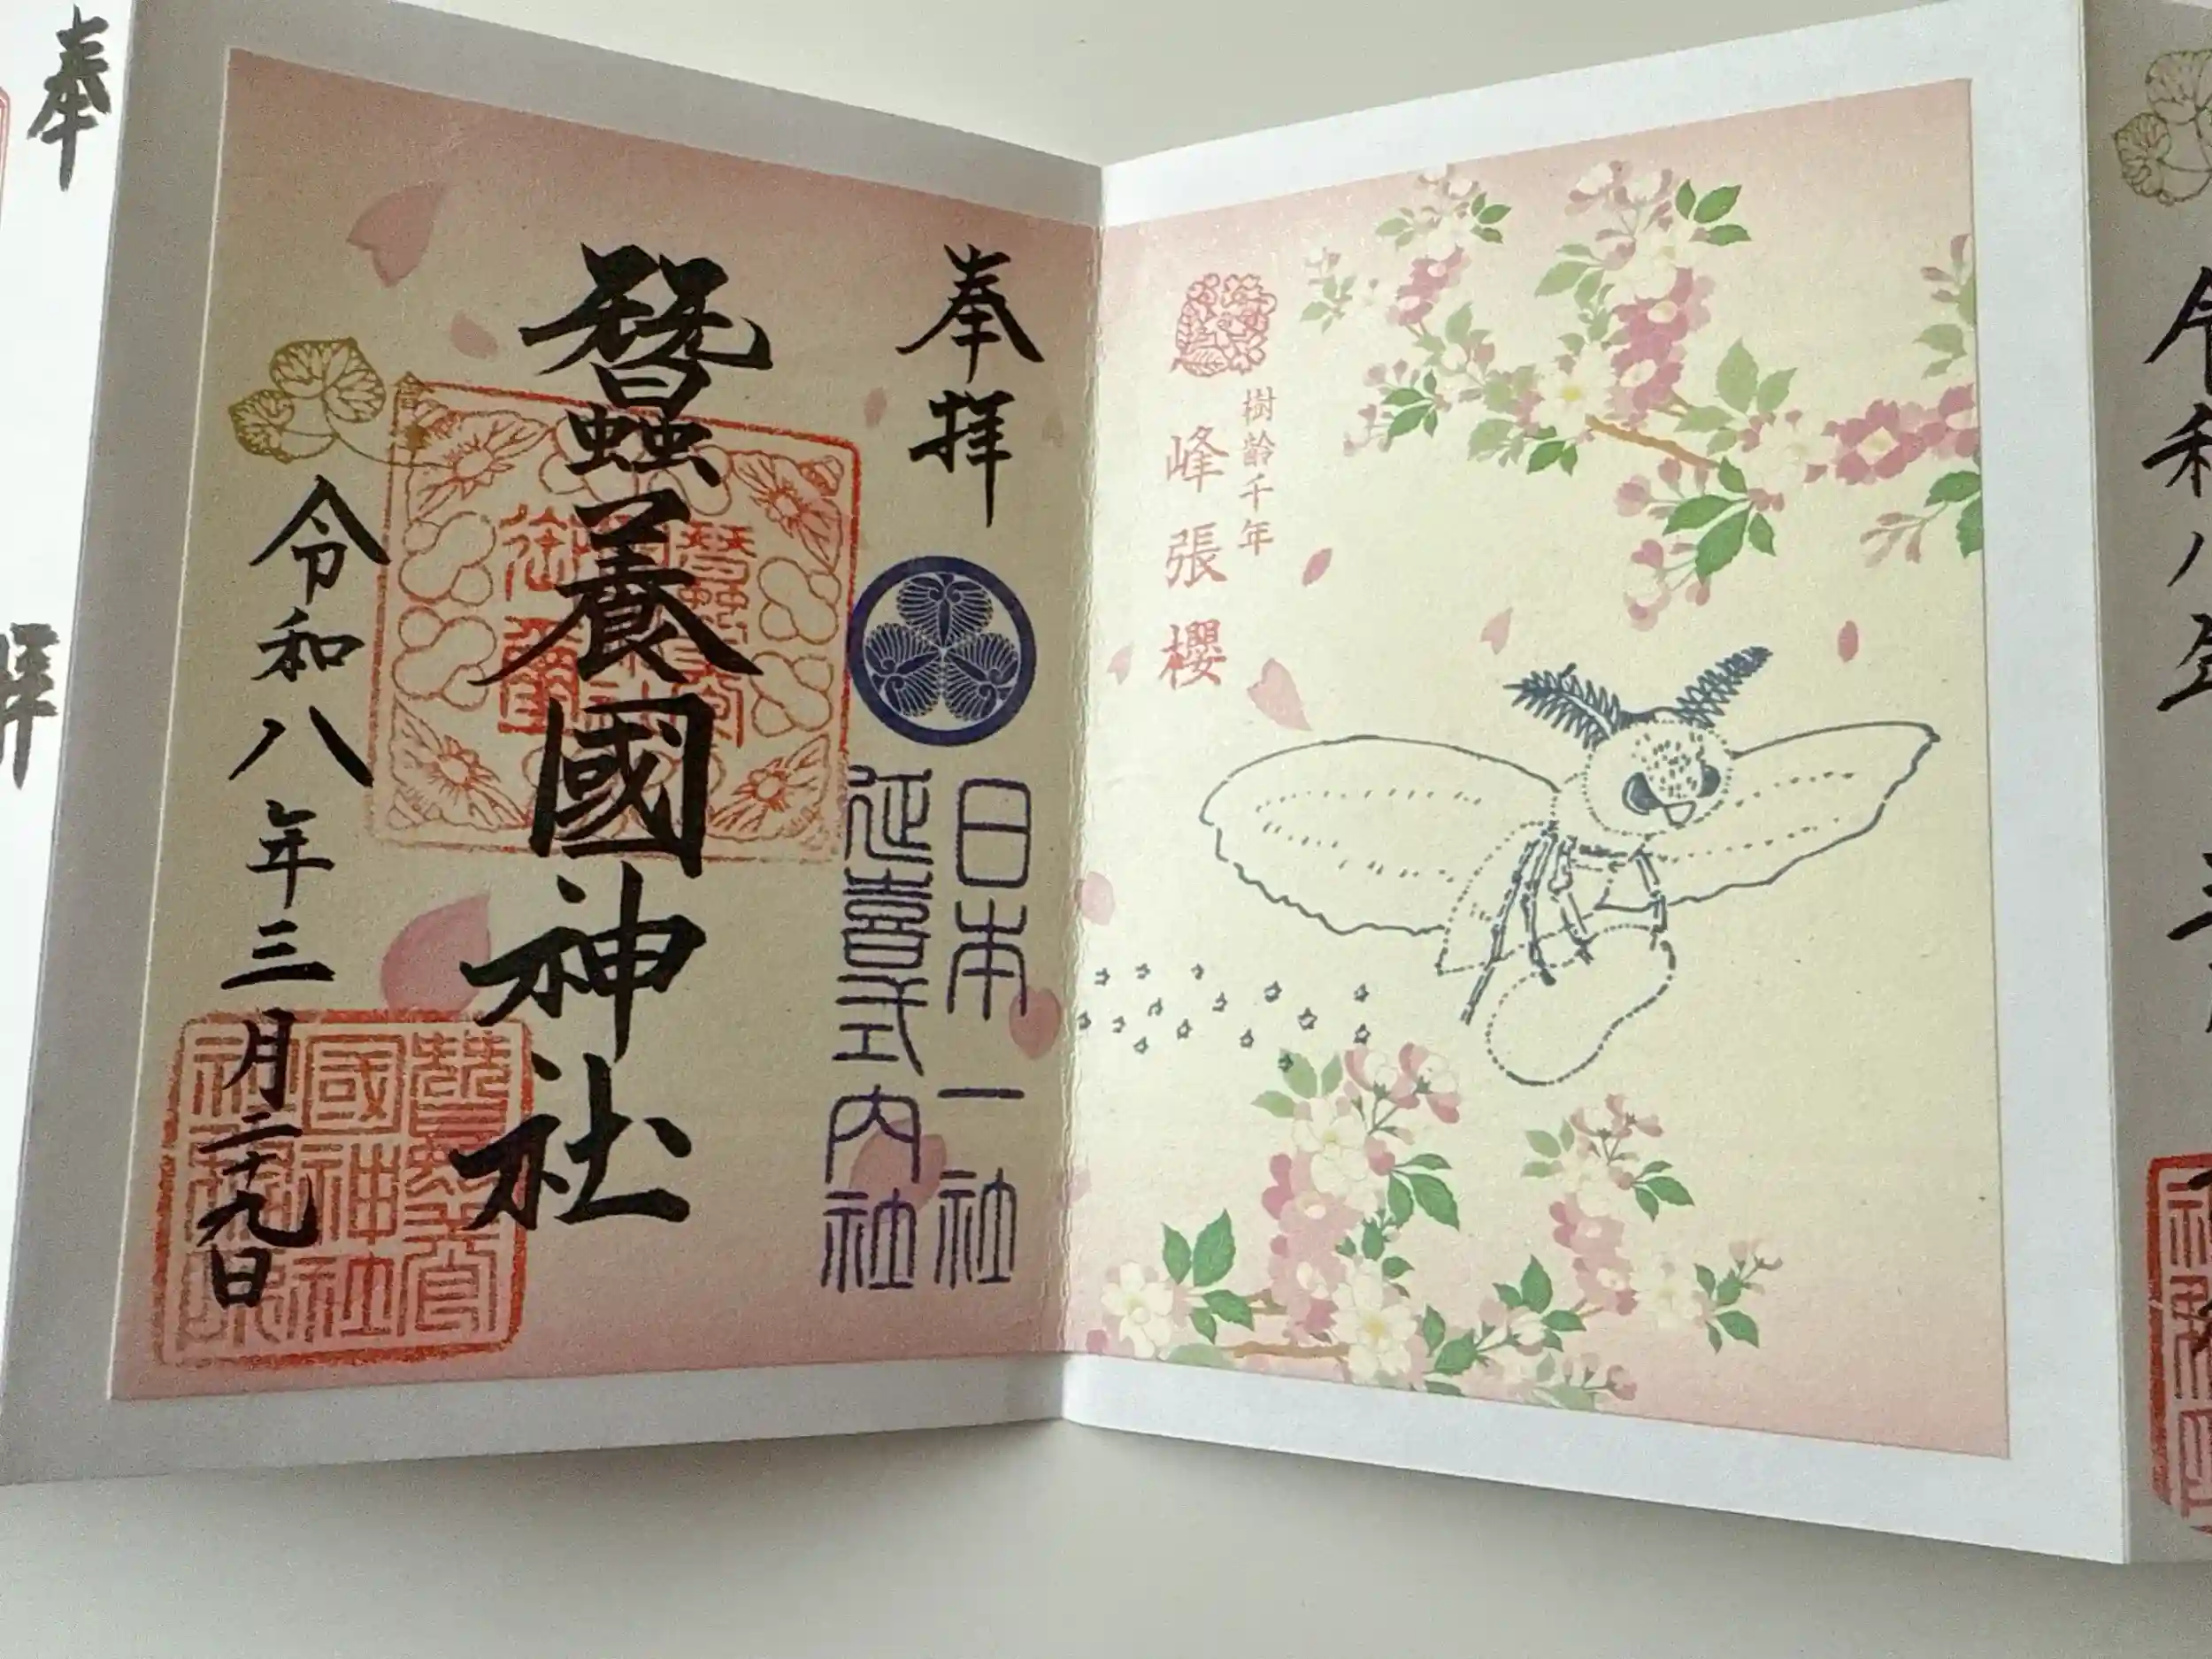 奉拝
日本一社
延喜式内社
蠶養國神社
令和八年三月二十九日
樹齢千年
峰張櫻
奉
拝
令和八年三